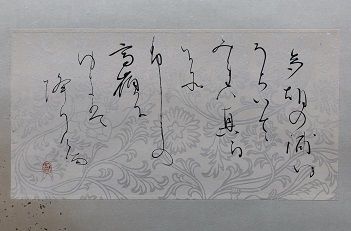 田胡の浦ゆ
うちいてて
みれハ真白
にそ
ふしの
高嶺に
ゆきは
降りける